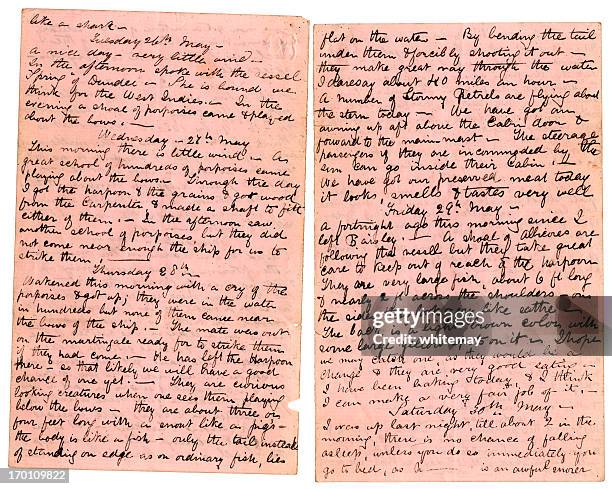 like a shark —
Tuesday 26th May —
A nice day — very little wind —
In the afternoon spoke with the vessel
Spring of Dundee — She is bound we
think for the West Indies — In the
evening a shoal of porpoises came & played
about the bows. —
Wednesday — 27th May
This morning there is little wind — A
great school of hundreds of porpoises came
playing about the bows — Through the day
I got the harpoon & the grains & got wood
from the Carpenter & made a shaft to fit
either of them. — In the afternoon saw
another school of porpoises, but they did
not come near enough the ship for us to
strike them. —
Thursday 28th
Wakened this morning with a cry of the
porpoises & got up, they were in the water
in hundreds but none of them came near
the bows of the ship — The mate was out
on the martingale ready for to strike them
if they had come. — He has left the harpoon
there — so that likely we will have a good
chance of one yet. — They are curious
looking creatures when one sees them playing
below the bows — they are about three or
four feet long with a snout like a pigs —
the body is like a fish — only the tail instead
of standing on edge as an ordinary fish, lies
flat on the water — By bending the tail
under them & forcibly shooting it out —
they make great way through the water
I daresay about 40 miles an hour —
A number of Stormy Petrels are flying about
the stern today — We have got an
awning up aft above the Cabin door &
forward to the mainmast — The steerage
passengers if they are incommoded by the
sun can go inside their Cabin. —
We have got our preserved meat today
it looks, smells & tastes very well
Friday 29th May —
A fortnight ago this morning since I
left Barsley. — A shoal of Albicores are
following the vessel but they take great
care to keep out of reach of the harpoon
They are very large fish, about 6 ft long
& nearly 2 ft across the shoulders, on
the sides like
The back is a light brown color, with
some on it — I hope
we may catch one as they would be a
change & they are very good eating —
I have been baking today, & I think
I can make a very fair job of it. —
Saturday 30th May —
I was up last night, till about 2 in the
morning, there is no chance of falling
asleep, unless you do so immediately you
go to bed, as is an awful snorer
gettyimages
Credit: whitemay
170109822